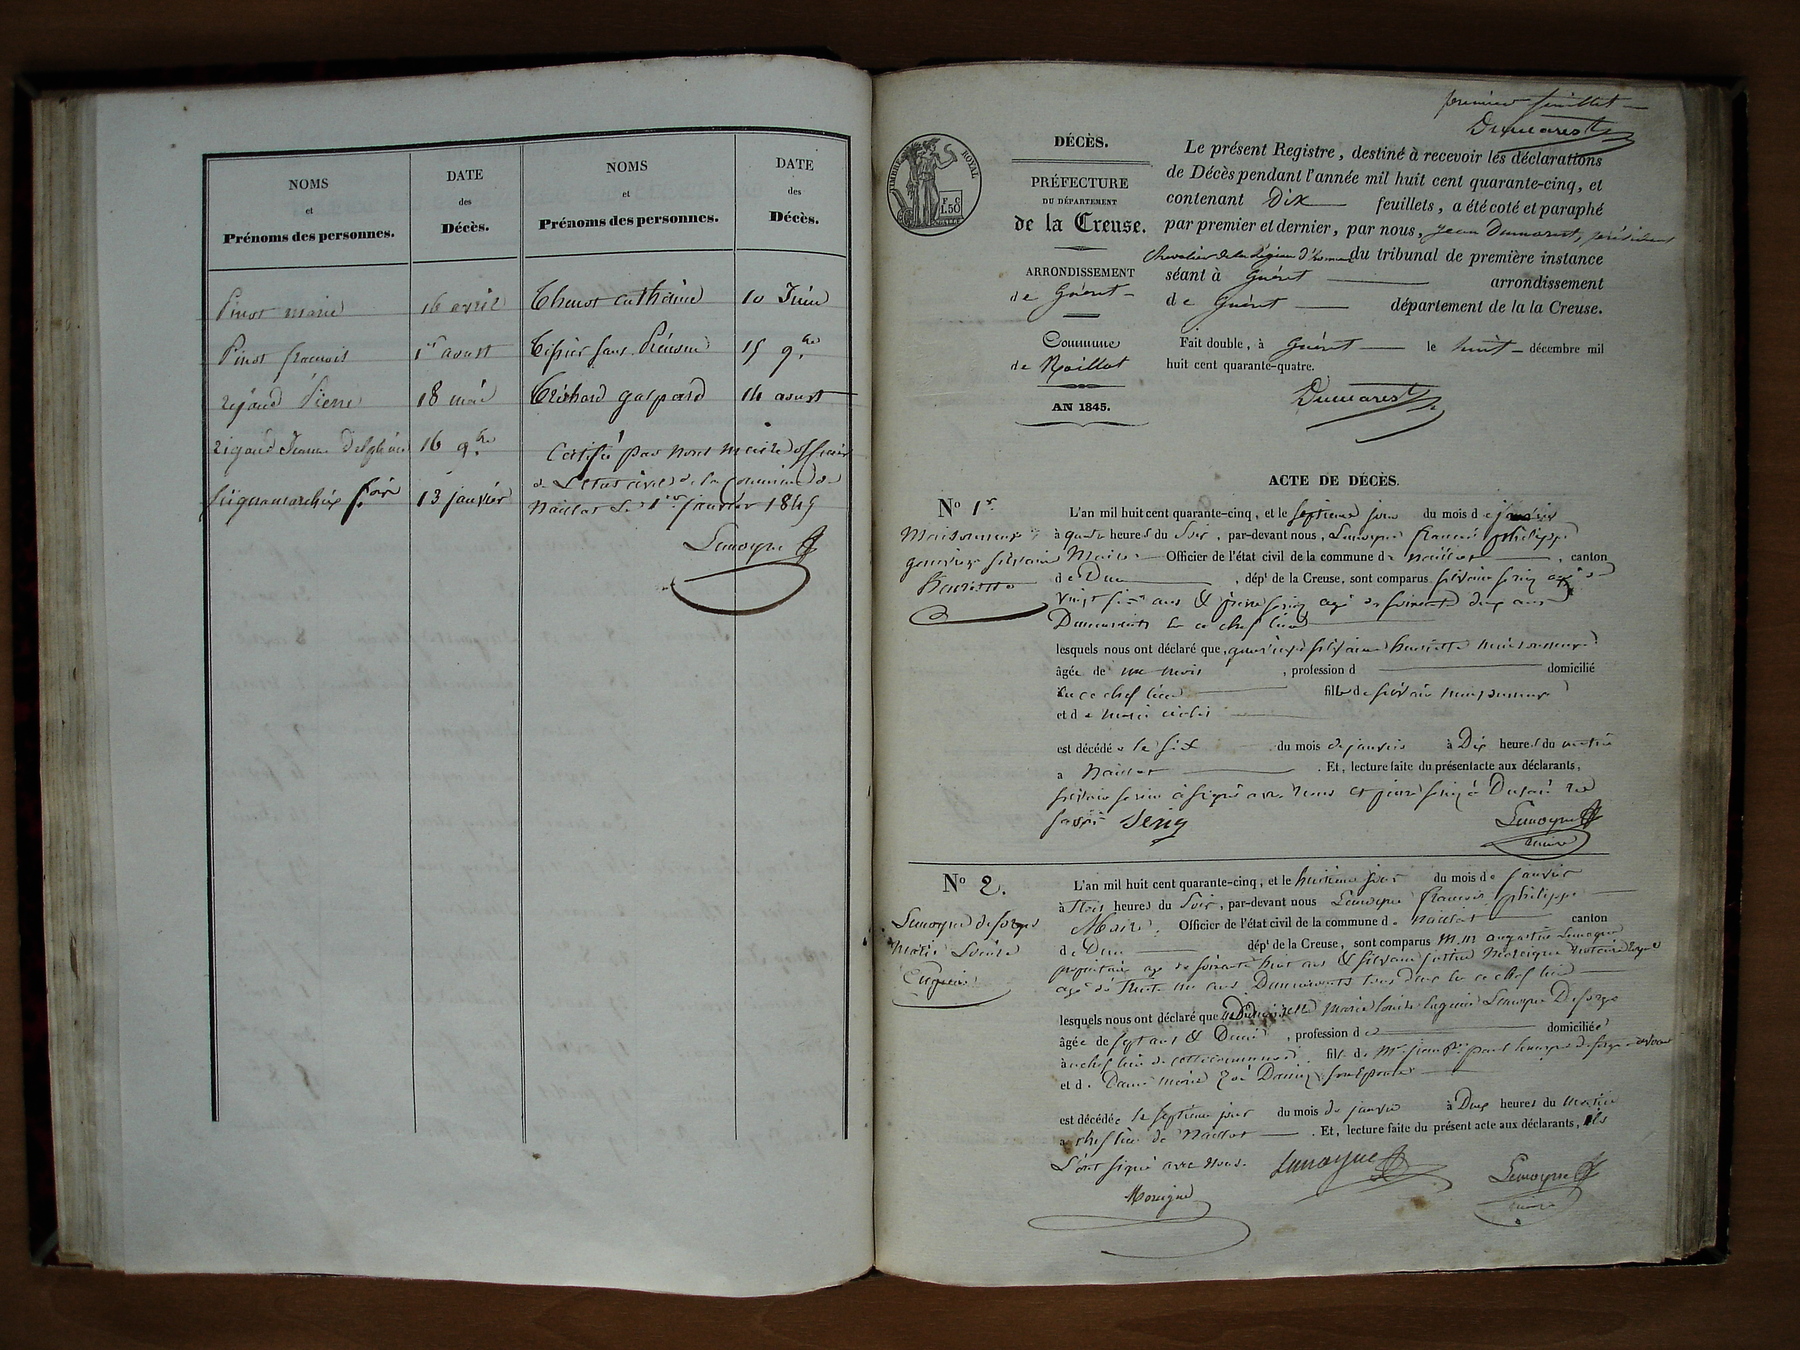 NOMS
et
Prénoms des personnes.
DATE
des
Décès.
NOMS
et
Prénoms des personnes.
DATE
des
Décès.
Pinot marie
16 avril
Chenot catherine
10 Juin
Pinot francois
1er aoust
15 9bre
rigaud Pierre
18 mai
Trichard gaspard
14 aoust
rigaud Jeanne delphine
16 9bre
Certifié par nous maire officier
de L'etat civil de la Commune de
13 janvier
naillat Le 1er janvier 1845
Lemoyne
premier feuillet
Dumarest
TIMBRE ROYAL
F. C
1.50
DÉCÈS.
PRÉFECTURE
DU DÉPARTEMENT
de la Creuse.
ARRONDISSEMENT
de Guéret
Commune
de Naillat
AN 1845.
Le présent Registre, destiné à recevoir les déclarations
de Décès pendant l'année mil huit cent quarante-cinq, et
contenant Dix feuillets, a été coté et paraphé
par premier et dernier, par nous, Jean Dumarest, président
chevalier de la Légion d'honneur du tribunal de première instance
séant à Guéret arrondissement
de Guéret département de la la Creuse.
Fait double, à Guéret le huit décembre mil
huit cent quarante-quatre.
Dumarest
ACTE DE DÉCÈS.
No 1er
Maisonneux
genevieve silvaine
henriette
L'an mil huit cent quarante-cinq, et le septieme jour du mois de janvier
à quatre heures du Soir, par-devant nous, Lemoyne francois philippe
Maire Officier de l'état civil de la commune de naillat, canton
de Dun, dépt de la Creuse, sont comparus silvain serin agé de
vingt six ans & pierre serin agé de soixante deux ans
Demeurants en ce chef lieu
lesquels nous ont déclaré que, genevieve silvaine henriette maisonneux
âgée de un mois, profession d domicilié
en ce chef lieu fille de silvain maisonneux
et de marie
est décédée le six du mois de janvier à Dix heures du matin
a Naillat. Et, lecture faite du présent acte aux déclarants,
silvain serin à signé avec nous et pierre serin à Declaré ne
savoir Serin
Lemoyne
maire
No 2.
Lemoyne desforges
marie Louise
Eugenie
L'an mil huit cent quarante-cinq, et le huitieme jour du mois de janvier
à trois heures du Soir, par-devant nous Lemoyne francois philippe
Maire, Officier de l'état civil de la commune de naillat canton
de Dun dépt de la Creuse, sont comparus M.rs augustin Lemoyne
propriétaire agé de soixante huit ans & silvain justin Moreigne notaire royal
agé de trente un ans Demeurants tous deux en ce chef lieu
lesquels nous ont déclaré que Demoiselle Marie louise Eugenie Lemoyne Desforges
âgée de sept ans & Demi, profession de domiciliée
au chef lieu de cette commune, fille de Mr paul lemoyne desforges
et de Dame marie Zoé son Epouse
est décédée le septieme jour du mois de janvier à Deux heures du matin
au chef lieu de Naillat. Et, lecture faite du présent acte aux déclarants, ils
L'ont signé avec nous.
Lemoyne
Lemoyne
maire
Moreigne